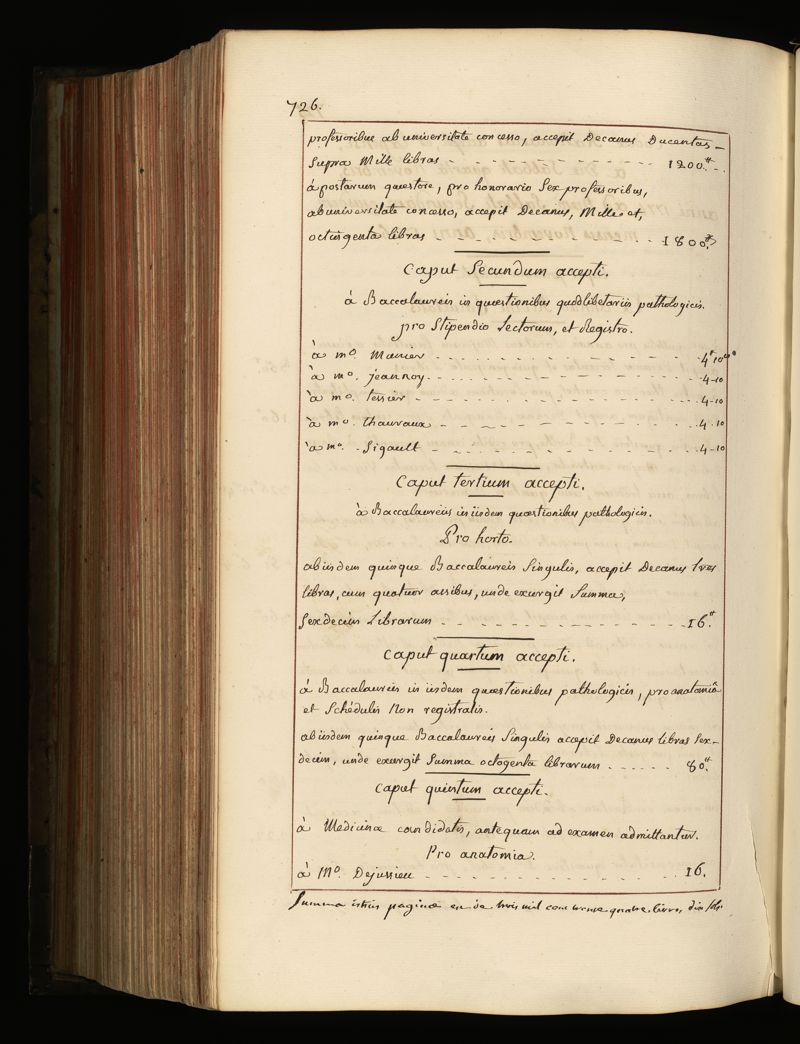 726.
professoribus ab universitate concesso, accepit Decanus Ducentas
supra Mille libras - - - - - - - - - - - 1200.#
à postarum quæstore, pro honorario sex professoribus,
ab universitate concesso, accepit Decanus, Mille et,
octingenta libras - - - - - - - - - - - 1800.#
Caput Secundum accepti.
à Baccalaureis in quæstionibus quodlibetariis pathologicis.
pro Stipendio Lectorum, et Registro.
à mo. Munier - - - - - - - - - - - 4# 10s
à mo. jeanroy - - - - - - - - - - - 4-10
à mo. tessier - - - - - - - - - - - 4-10
à mo. thauraux - - - - - - - - - - - 4.10
à mo. Sigault - - - - - - - - - - - 4-10
Caput tertium accepti.
à Baccalaureis in iisdem quæstionibus pathologicis.
Pro horto.
ab iisdem quinque Baccalaureis singulis, accepit Decanus tres
libras, cum quatuor assibus, unde exurgit Summa,
sexdecim Librarum - - - - - - - - - - - 16.#
Caput quartum accepti.
à Baccalaureis in iisdem quæstionibus pathologicis, pro anatomiâ
et Schédulis Non registratis.
ab iisdem quinque Baccalaureis Singulis accepit Decanus libras Sex-
decim, unde exurgit Summa octogenta librarum - - - - - - 80.#
Caput quintum accepti.
à Medicinæ candidatis, antequam ad examen admittantur.
Pro anatomia.
à Mo. Dejussieu - - - - - - - - - - - 16.
Summa istius paginæ est de trois mil cent trente quatre livres, dix sols.